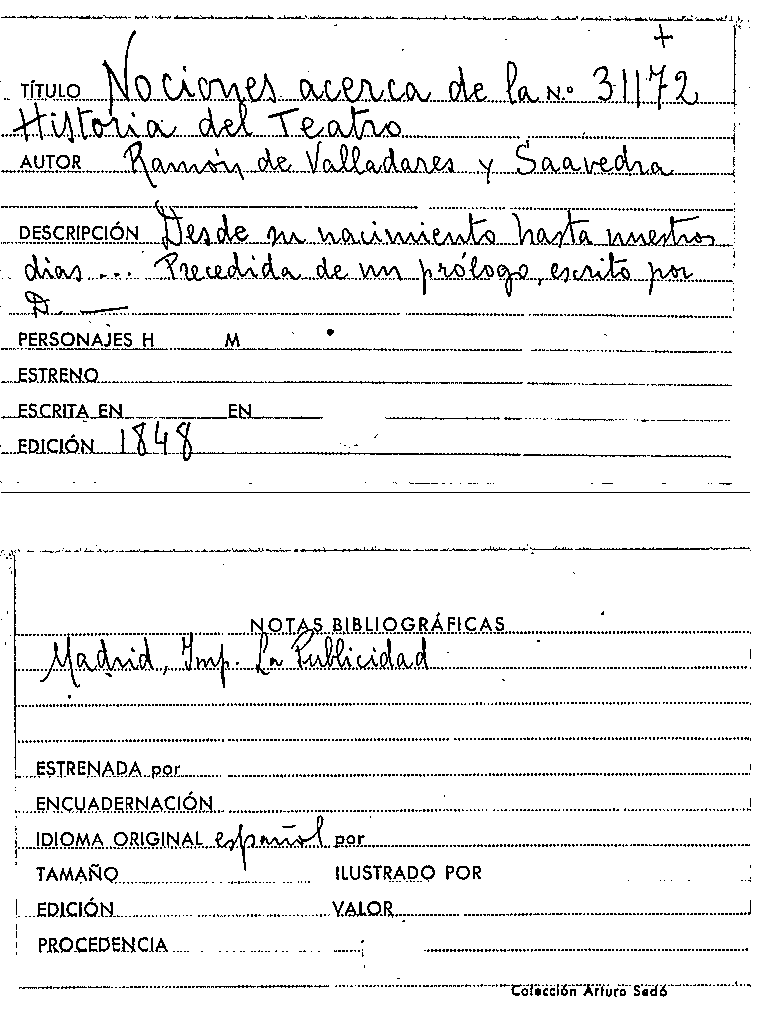 +
TÍTULO Nociones acerca de la N.º 31172
Historia del Teatro
AUTOR Ramón de Valladares y Saavedra
DESCRIPCIÓN Desde su nacimiento hasta nuestros
dias ... Precedida de un prólogo, escrito por
D. —
PERSONAJES H M
ESTRENO
ESCRITA EN EN
EDICIÓN 1848
NOTAS BIBLIOGRÁFICAS
Madrid, Imp. La Publicidad
ESTRENADA por
ENCUADERNACIÓN
IDIOMA ORIGINAL español por
TAMAÑO ILUSTRADO POR
EDICIÓN VALOR
PROCEDENCIA
Colección Arturo Sedó